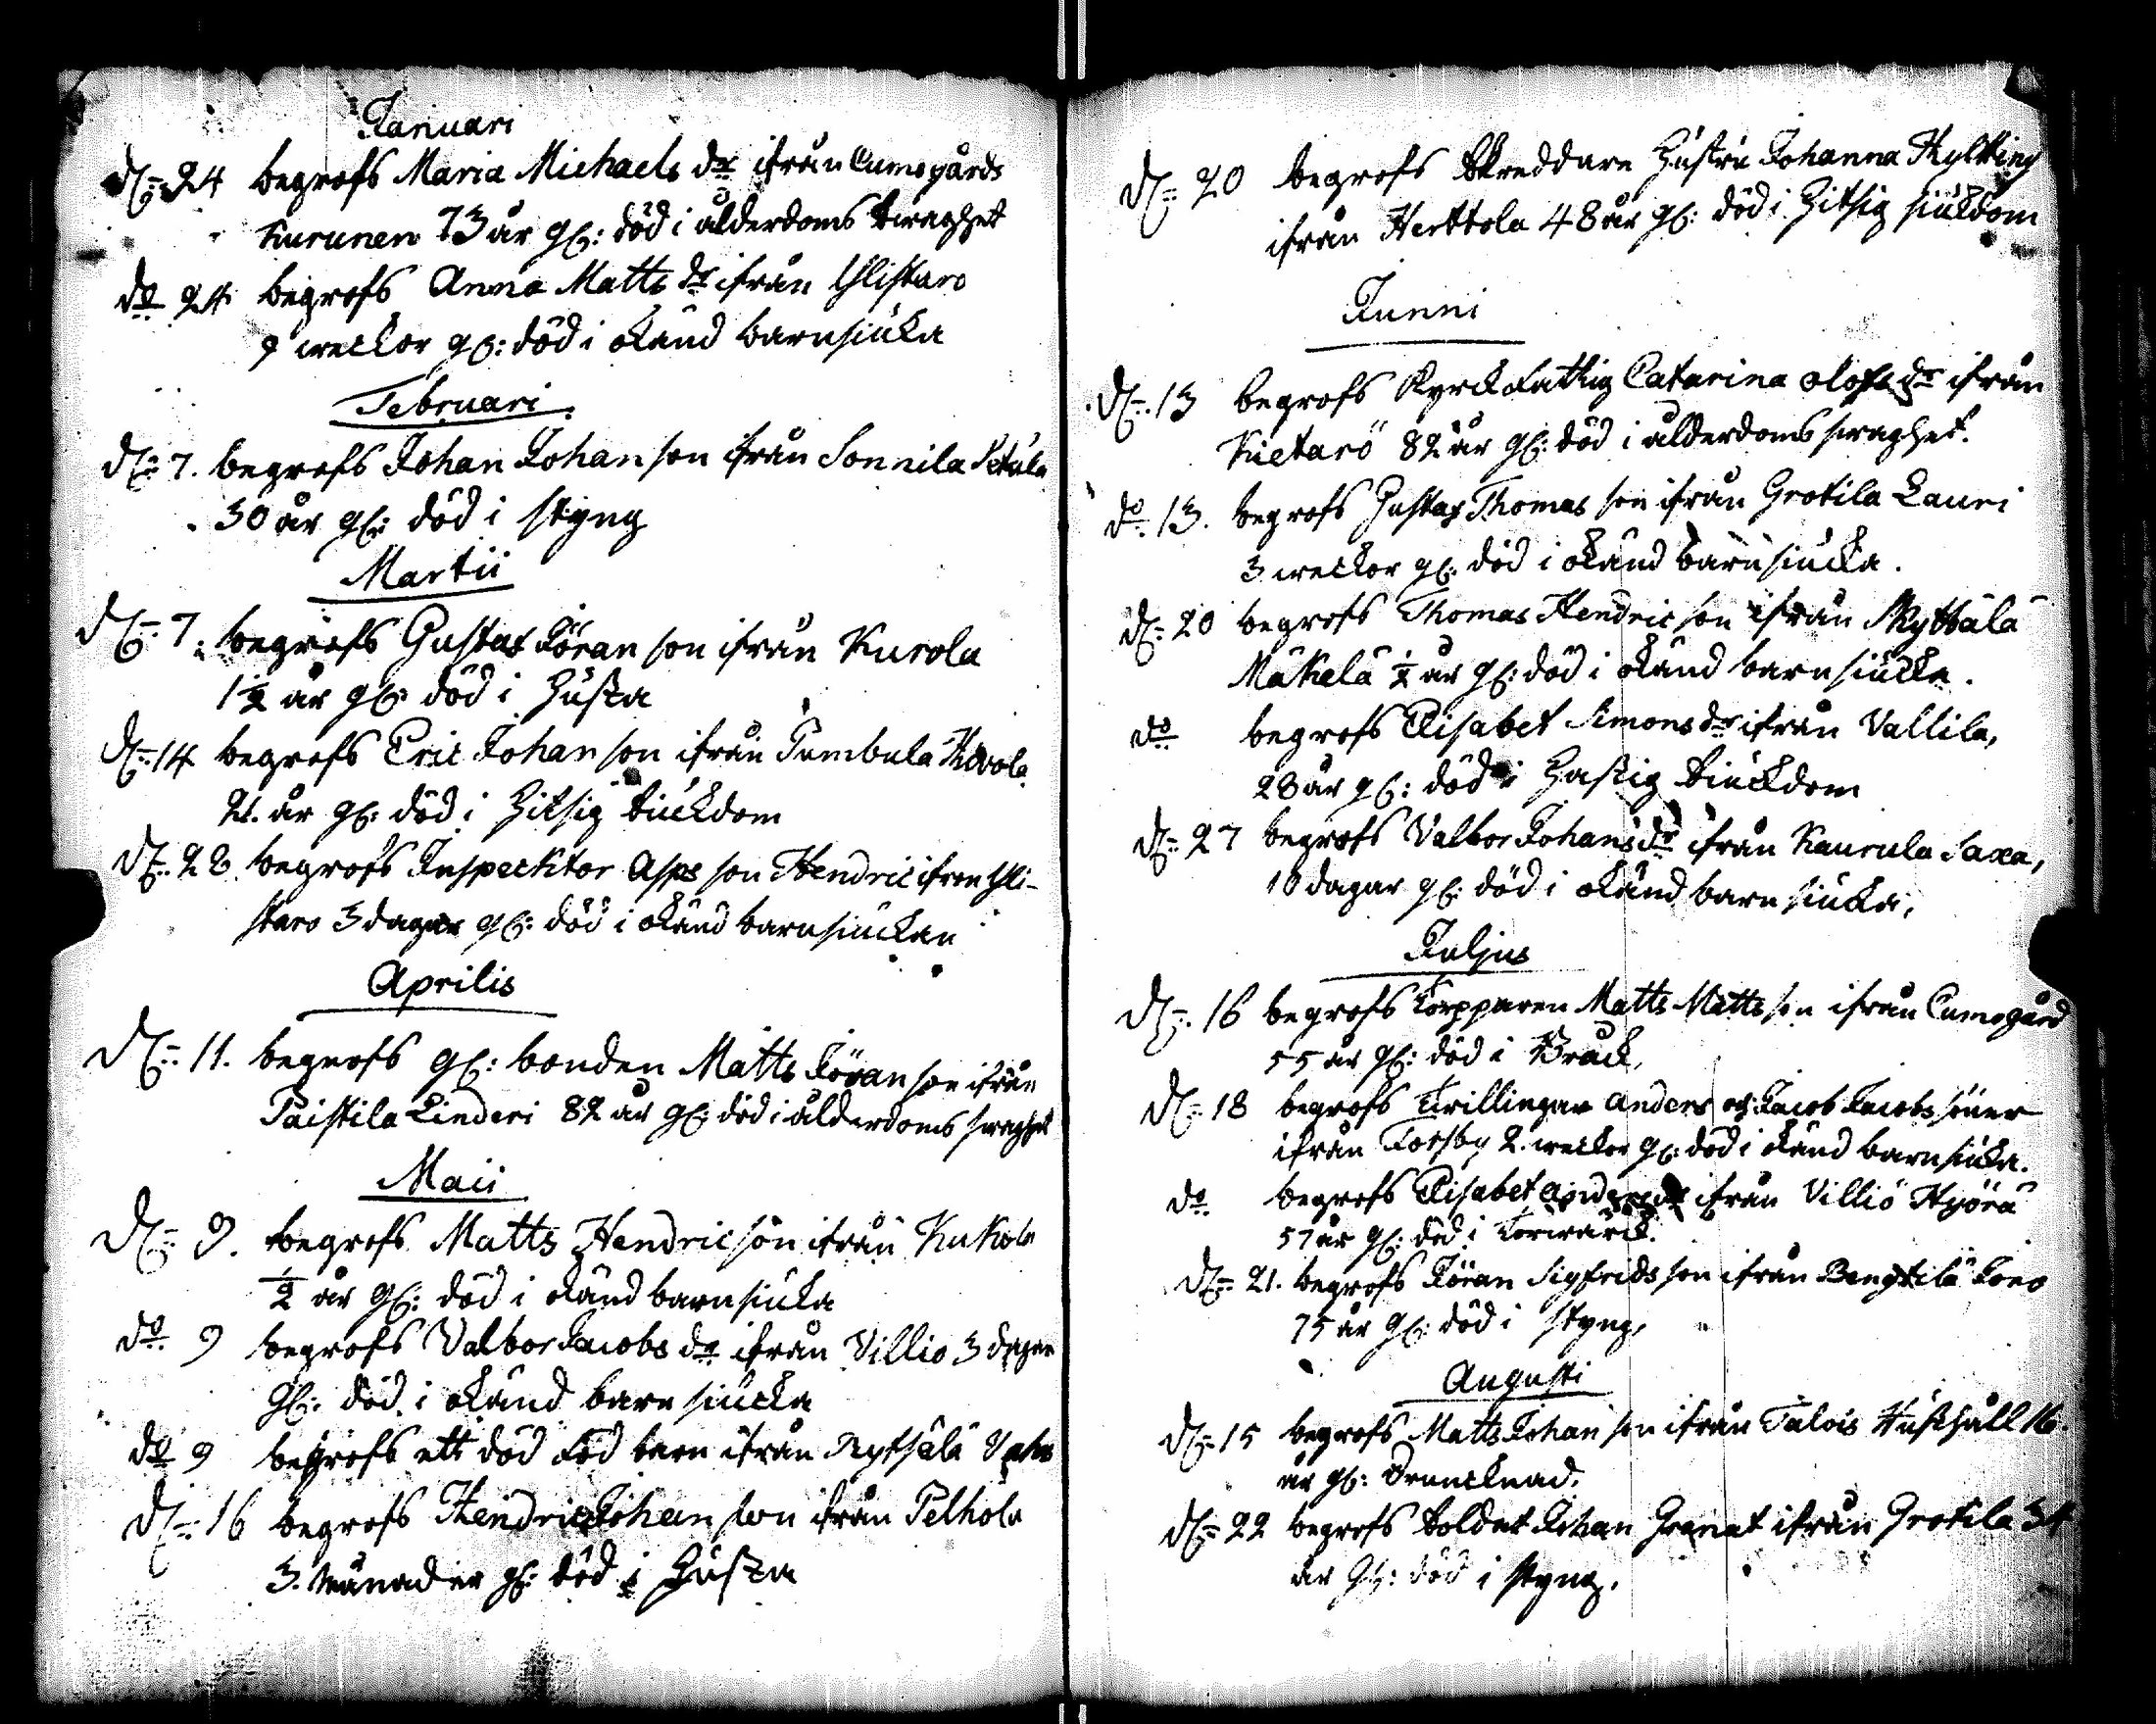 Januari
d. 24 begrofs Maria Michaels dr ifrån Cumogårds
Kurunen 73 år gl: död i ålderdoms swaghet
do 24 begrofs Anna Matts dr ifrån Ylistaro
9 weckor gl: död i okänd barnsiuka
Februari
d. 7. begrofs Johan Johan son ifrån Sonnila Sctala
30 år gl: död i styng
Martii
d. 7. begrofs Gustaf Jöran son ifrån Kurola
1 1/2 år gl: död i Hosta
d. 14 begrofs Eric Johan son ifrån Pumbula
21. år gl: död i Hitsig siuckdom
d. 28 begrofs Inspecktor Asps son Hendric ifron Yli-
staro 3 dagar gl: död i okänd barnsiuckan
Aprilis
d. 11. begrofs gl: bonden Matts Jöran son ifrån
Paistila Linderi 82 år gl: död i ålderdoms swaghet
Maii
d. 9. begrofs Matts Hendric son ifrån Kukola
1/2 år gl: död i okänd barnsiuka
do 9 begrofs Valbor Jacobs dr ifrån Villio 3 dagar
gl: död i okänd barn siucka
do 9 begrofs ett död föd barn ifrån Ryttsälä
d. 16 begrofs Hendric Johan son ifrån Pelhola
3. Månader gl: död i Hosta
d. 20 begrofs Skreddare Hustru Johanna
ifrån Herttola 48 år gl: död i Hitsig siukdom
Junni
d. 13 begrofs Kyrck Fattig Catarina Olofs dr ifrån
Kietarö 82 år gl: död i ålderdoms swaghet.
do 13. begrofs Gustaf Thomas son ifrån Grotila Lauri
3 weckor gl: död i okänd barn siucka.
d. 20 begrofs Thomas Hendric son ifrån Ryttälä
Mäkelä 1/2 år gl: död i okänd barn siucka.
do begrofs Elisabet Simons dr ifrån Vallila,
28 år gl: död i Hastig siuckdom
d. 27 begrofs Valbor Johans dr ifrån Kaurula Saxa,
10 dagar gl: död i okänd barn siucka,
Juljus
d. 16 begrofs Torpparen Matts Matts son ifrån Cumogård
55 år gl: död i Bråck,
d. 18 begrofs Twillingar Anders och Jacob Jacobs söner
ifrån Forsby 2. weckor gl: död i okänd barn siuka.
do begrofs Elisabet Anders dr ifrån Villiö Hyörä
57 år gl: död i Torrwärck.
d. 21. begrofs Jöran Sigfrids son ifrån Bengtilä
75 år gl: död i styng,
Augusti
d. 15 begrofs Matts Johan son ifrån Talois Hushåll 16.
år gl: Druncknad.
d. 22 begrofs Soldat Johan Granat ifrån Grotila 34
år gl: död i styng.